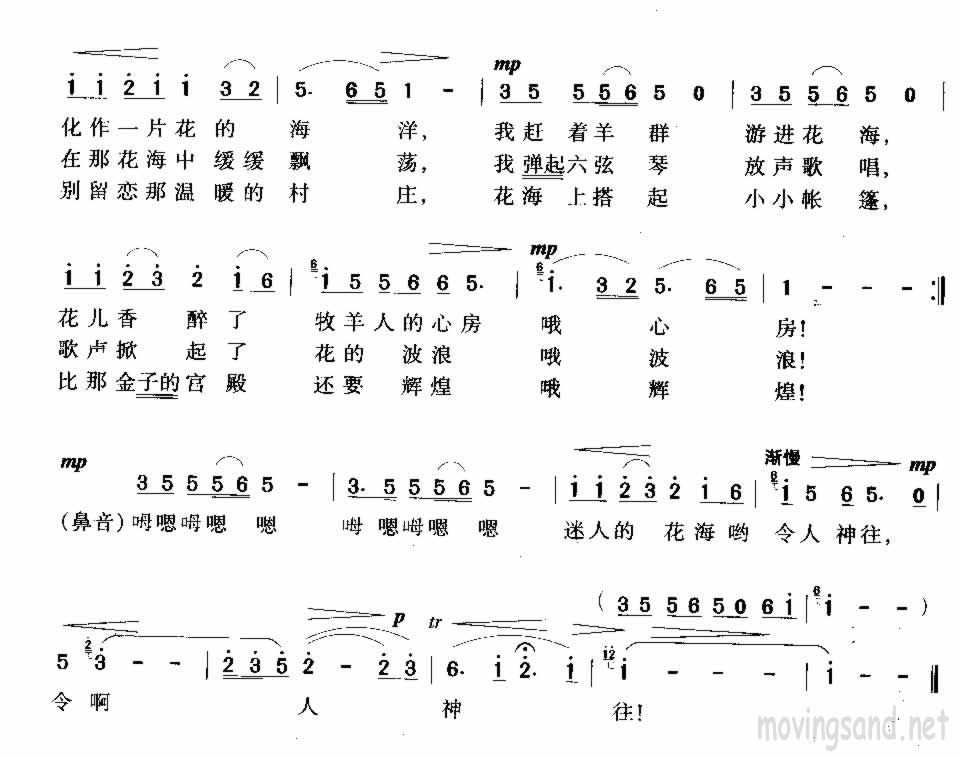 i i 2 i i 3 2 | 5· 6 5 1 - | mp 3 5 5 5 6 5 0 | 3 5 5 6 5 0 |
化作一片花的海洋，我赶着羊群游进花海，
在那花海中缓缓飘荡，我弹起六弦琴放声歌唱，
别留恋那温暖的村庄，花海上搭起小小帐篷，
mp
i i 2 3 2 i 6 | 6 i 5 5 6 6 5· | 6 i· 3 2 5· 6 5 | 1 - - :‖
花儿香醉了牧羊人的心房哦心房！
歌声掀起了花的波浪哦波浪！
比那金子的宫殿还要辉煌哦辉煌！
mp 渐慢 mp
3 5 5 5 6 5 - | 3· 5 5 5 6 5 - | i i 2 3 2 i 6 | 6 i 5 6 5· 0 |
(鼻音)呣嗯呣嗯嗯呣嗯呣嗯嗯迷人的花海哟令人神往，
( 3 5 5 6 5 0 6 i | 6 i - - )
p tr
5 2 3 - - | 2 3 5 2 - 2 3 | 6· i 2· i | i2 i - - - | i - - ‖
令啊人神往！
movingsand.net